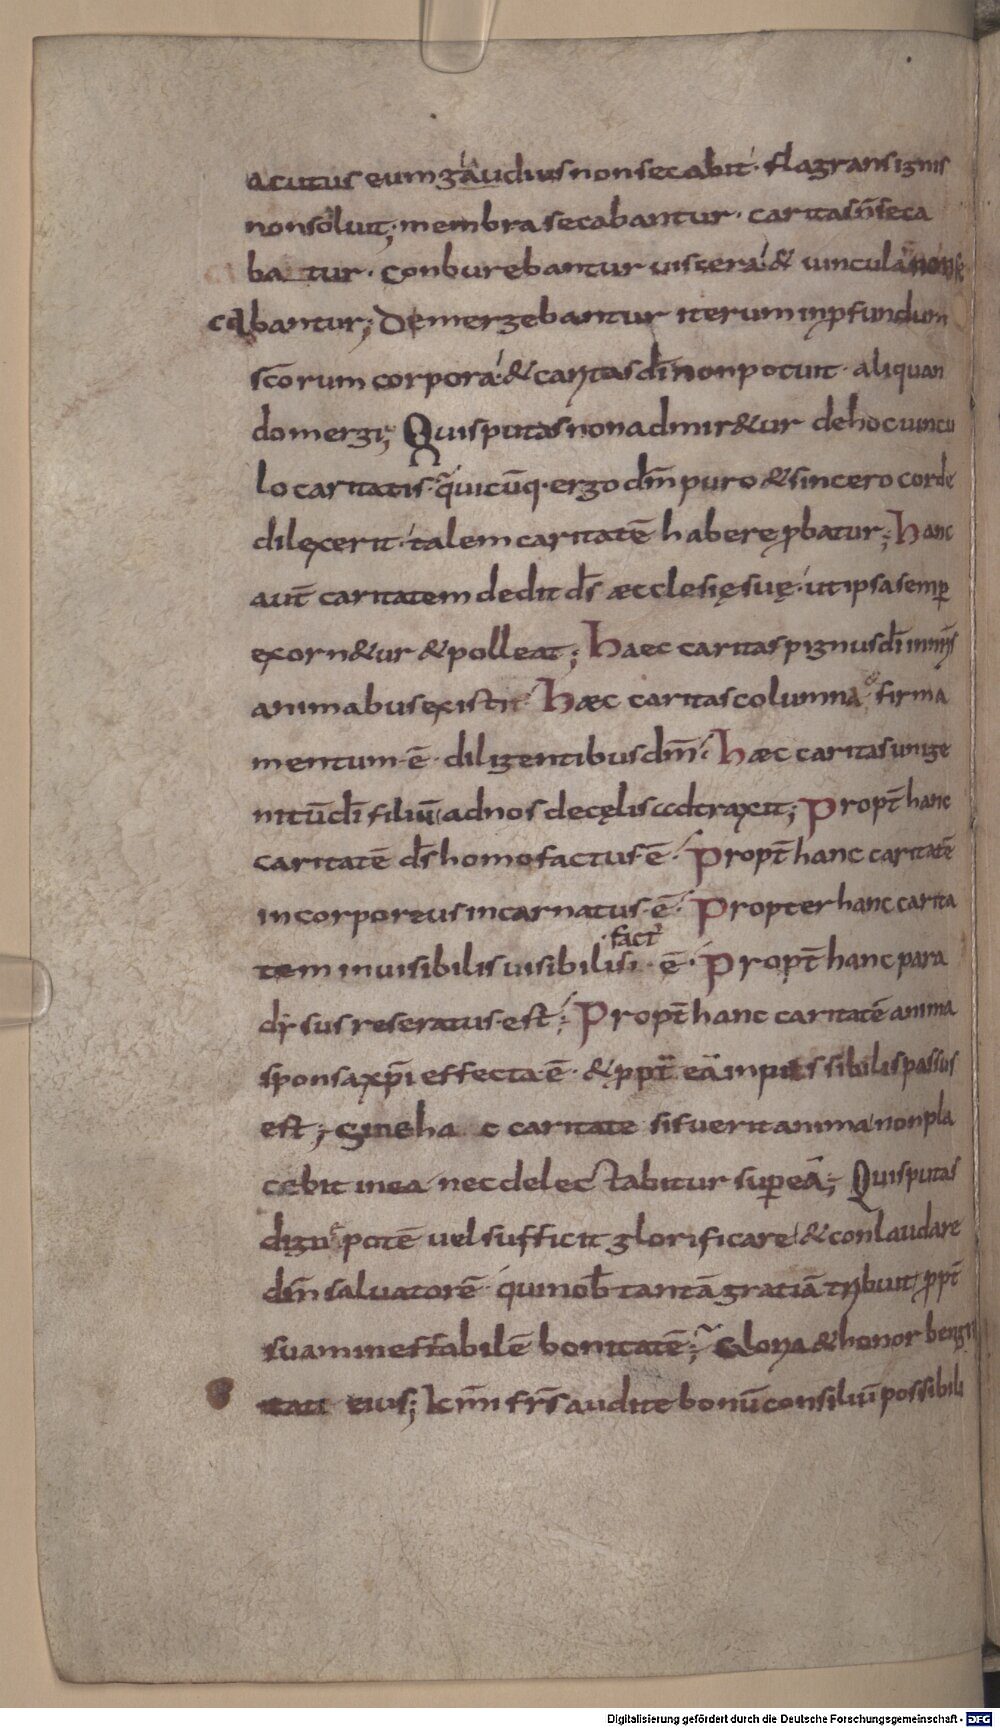 acutus eum gladius non secabit· flagrans ignis
non soluit; membra secabantur· caritas n̄ seca
batur· conburebantur viscera & vincula non se
cabantur; Demergebantur iterum in pfundum
scōrum corpora & caritas dī non potuit· aliquan
do mergi; Quis putas non admir&ur de hoc vincu
lo caritatis· quicūq· ergo dm̄ puro & sincero corde
dilexerit· talem caritatē habere pbatur; Hanc
aut̄ caritatem dedit ds̄ æcclesię suę· ut ipsa semp
exorn&ur & polleat; Haec caritas pignus dī in
animabus existit· Hæc caritas columna & firma
mentum ē diligentibus dm̄; Hæc caritas unige
nitū dī filiū ad nos de cęlis adtraxit; Propt̄ hanc
caritatē ds̄ homo factus ē· Propt̄ hanc caritatē
incorporeus incarnatus ē· Propter hanc carita
tem invisibilis visibilis fact' ē· Propt̄ hanc para
dysus reseratus est; Propt̄ hanc caritatē anima
sponsa xp̄i effecta ē· & ppt̄ eā inpassibilis passus
est; Sine hac caritate si fuerit anima non pla
cebit in ea nec delectabitur sup eā; Quis putas
dign potē vel sufficit glorificare & conlaudare
dm̄ salvatorē· qui nob̄ tantā gratiā tribuit ppt̄
suam ineffabilē bonitatē; Gloria & honor benig
nitati eius; Kmī frs̄ audite bonū consiliū possibili
Digitalisierung gefördert durch die Deutsche Forschungsgemeinschaft - DFG